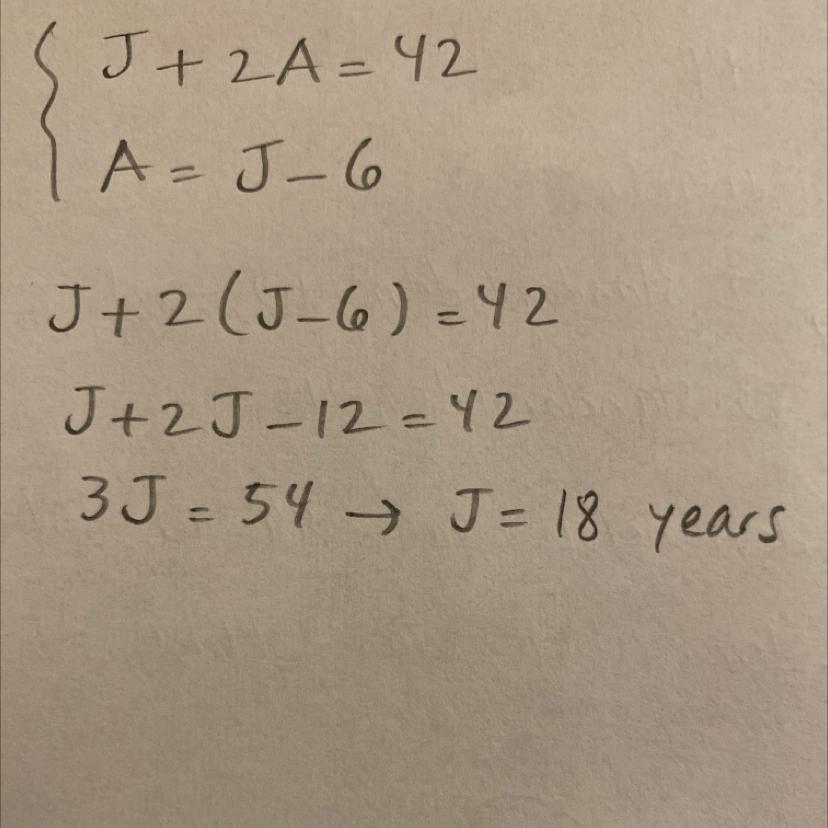 J + 2A = 42
A = J - 6
J + 2(J - 6) = 42
J + 2J - 12 = 42
3J = 54 → J = 18 years